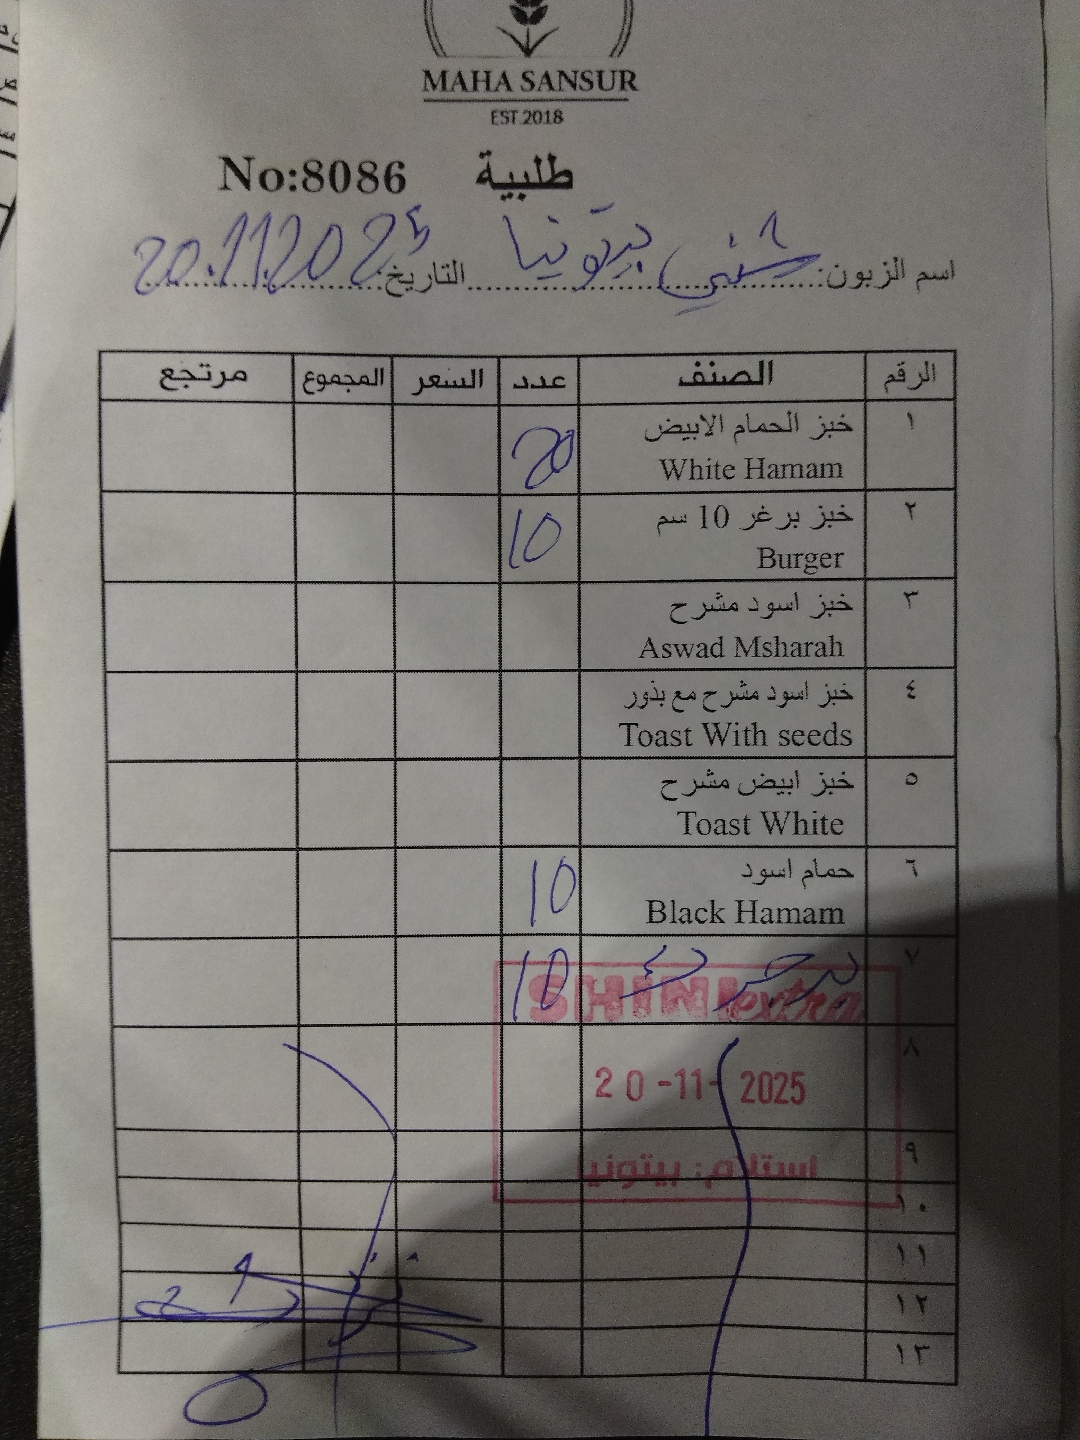 MAHA SANSUR
EST.2018
No:8086 طلبية
اسم الزبون: شني بيتونيا التاريخ: 20.11.2025
الرقم الصنف عدد السعر المجموع مرتجع
١ خبز الحمام الابيض 20
White Hamam
٢ خبز برغر 10 سم 10
Burger
٣ خبز اسود مشرح
Aswad Msharah
٤ خبز اسود مشرح مع بذور
Toast With seeds
٥ خبز ابيض مشرح
Toast White
٦ حمام اسود 10
Black Hamam
٧ 10
SHINI extra
٨
20-11-2025
٩
استلام: بيتونيا
١٠
١١
١٢
١٣